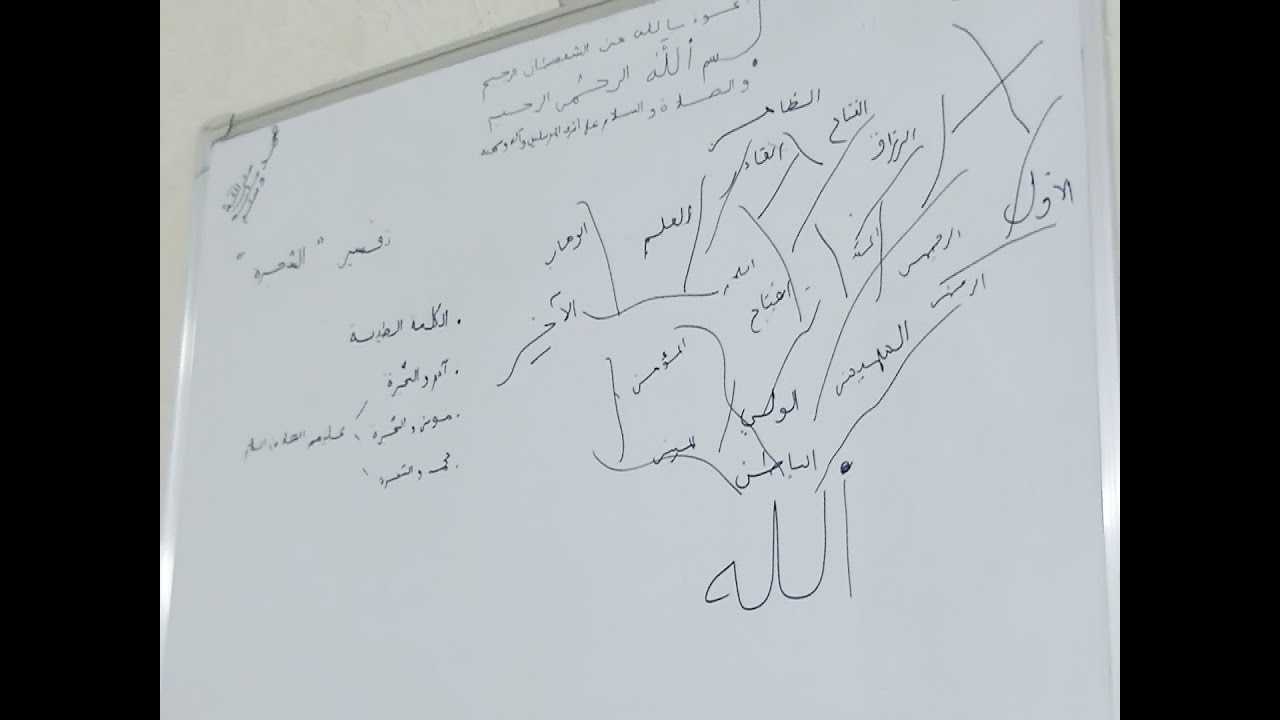 أعوذ بالله من الشيطان الرجيم
بسم ألله الرحمن الرحيم
والصلاة والسلام على أشرف المرسلين وآله وصحبه
الظاهر
الفتاح
القادر
الرزاق
العليم
الوهاب
الأول
الرحيم
الرحمن
الآخر
الفتاح
المؤمن
المهيمن
الولي
الباطن
ألله
تفسير "الشجرة"
. الكلمة الطيبة
. آدم والشجرة
. موسى والشجرة عليهم الصلاة والسلام
. محمد والشجرة